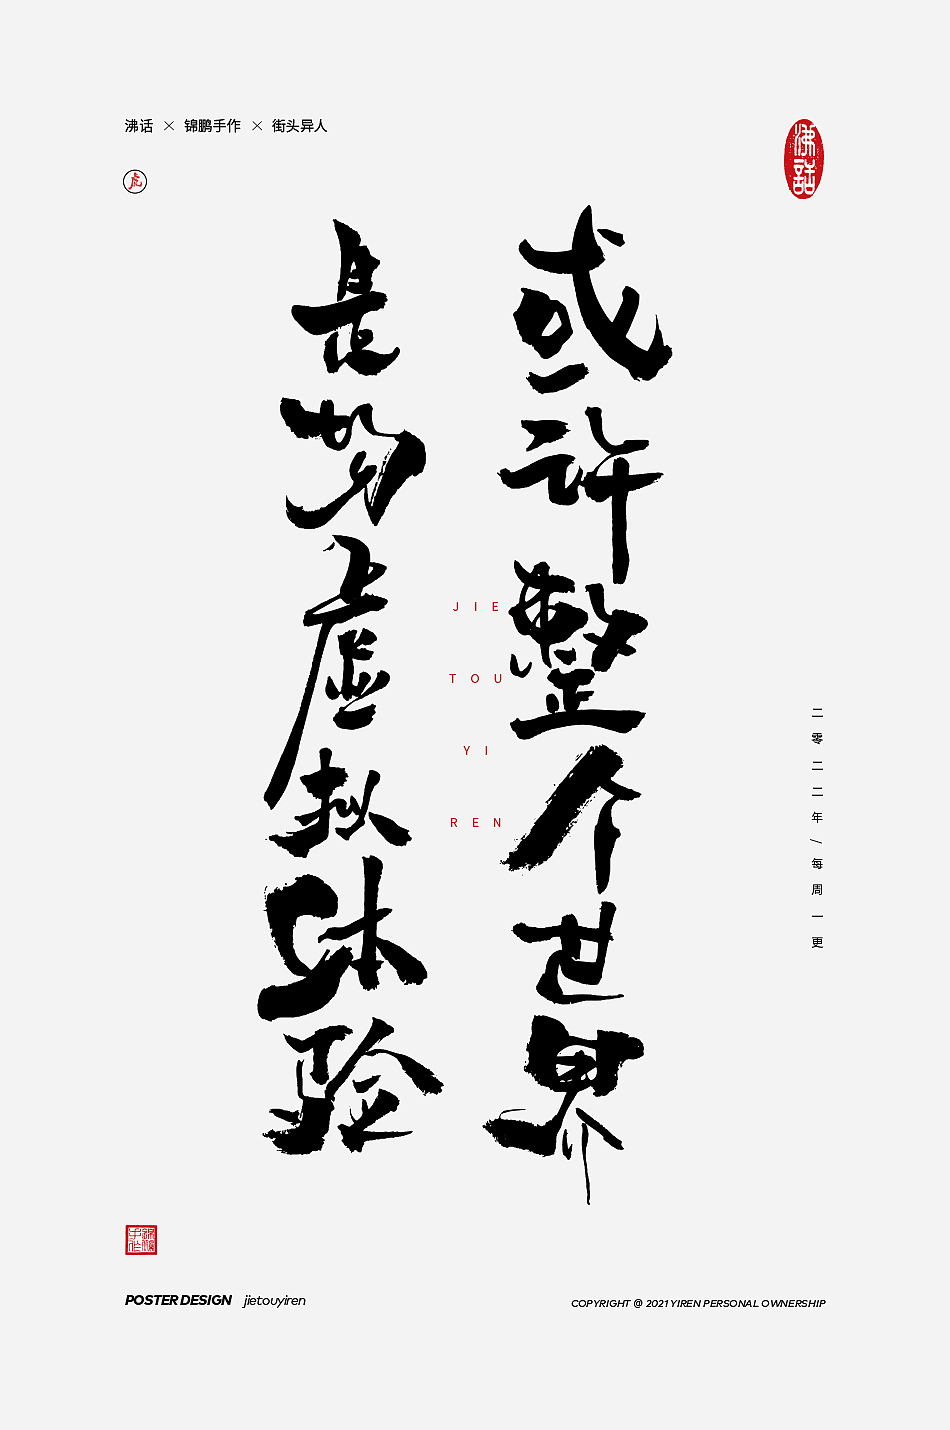 沸话 × 锦鹏手作 × 街头异人
虎
沸話
或许整个世界
是场虚拟体验
JIE
TOU
YI
REN
二零二二年/每周一更
POSTER DESIGN jietouyiren
COPYRIGHT @ 2021 YIREN PERSONAL OWNERSHIP